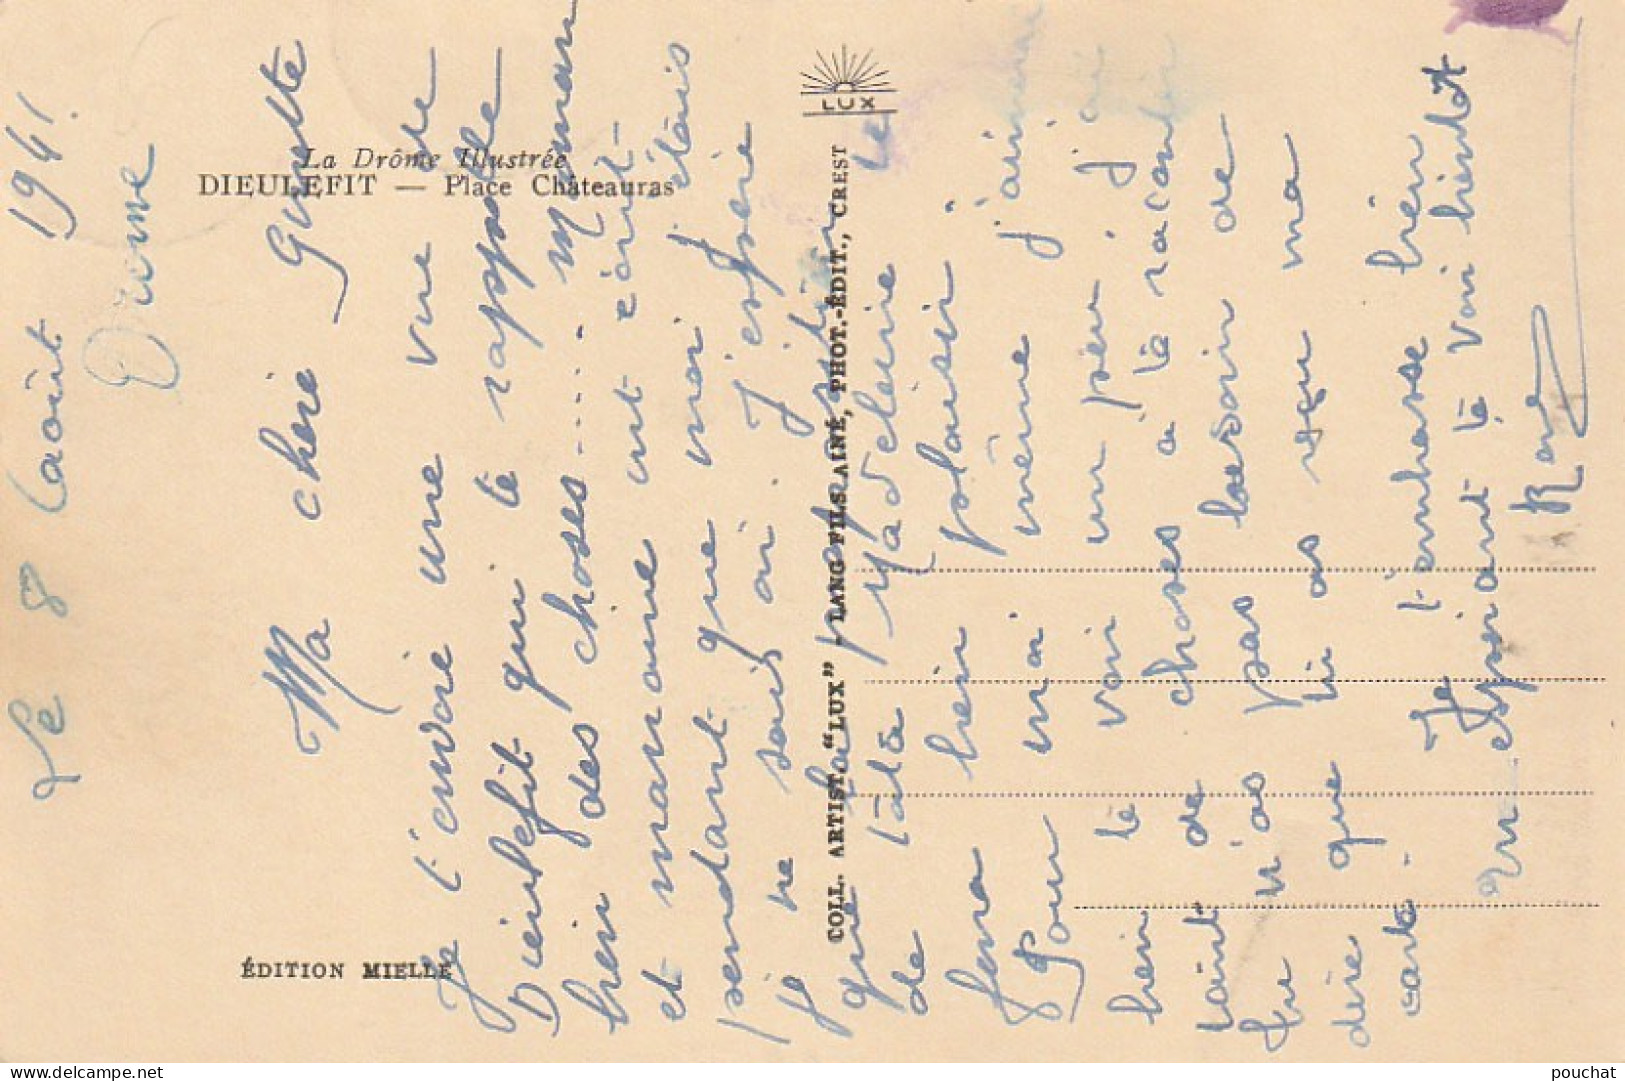 Le 8 Laoüt 1941.
Drôme
Ma chère Guette
Je t'envoie une vue de
Dieulefit qui te rappelle
bien des choses..... maman
et marraine ont écrit
pendant que moi j'étais
je ne sais où. J'espère
que la
de tata Madeleine te
fera bien plaisir.
Pour moi même j'aimerai
bien te voir un peu j'ai
tant de choses à te raconter
Tu n'as pas besoin de
dire que tu as reçu ma
carte.
Je t'embrasse bien
En espérant te voir bientôt
La Drôme Illustrée
DIEULEFIT — Place Châteauras
ÉDITION MIELLE
LUX
COLL. ARTIST. "LUX" - LANG FILS AINÉ, PHOT.-ÉDIT., CREST
delcampe.net
pouchat